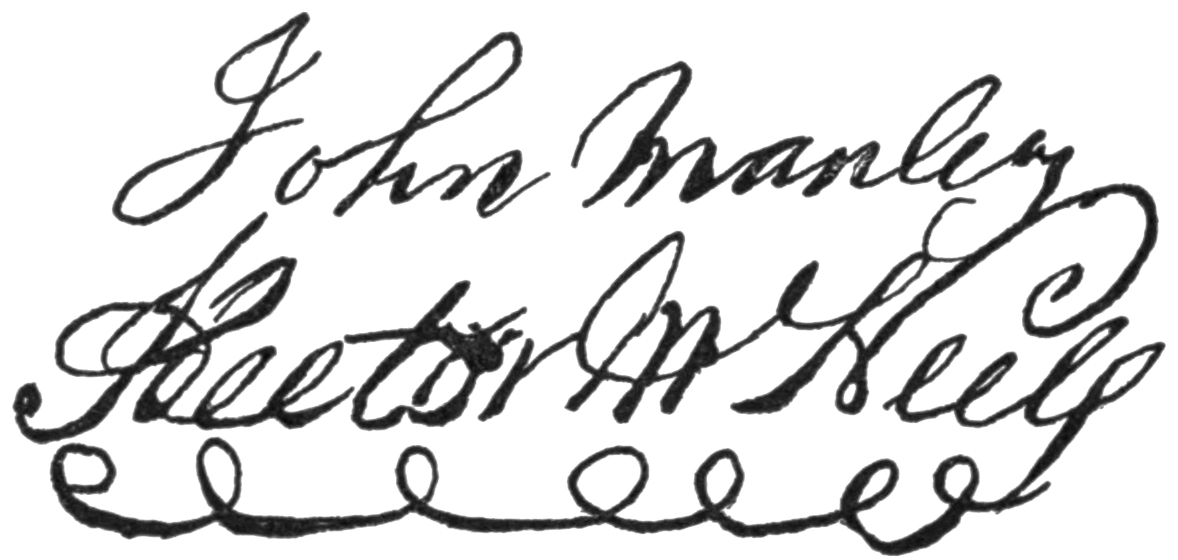 John Manley
Hector McNeely